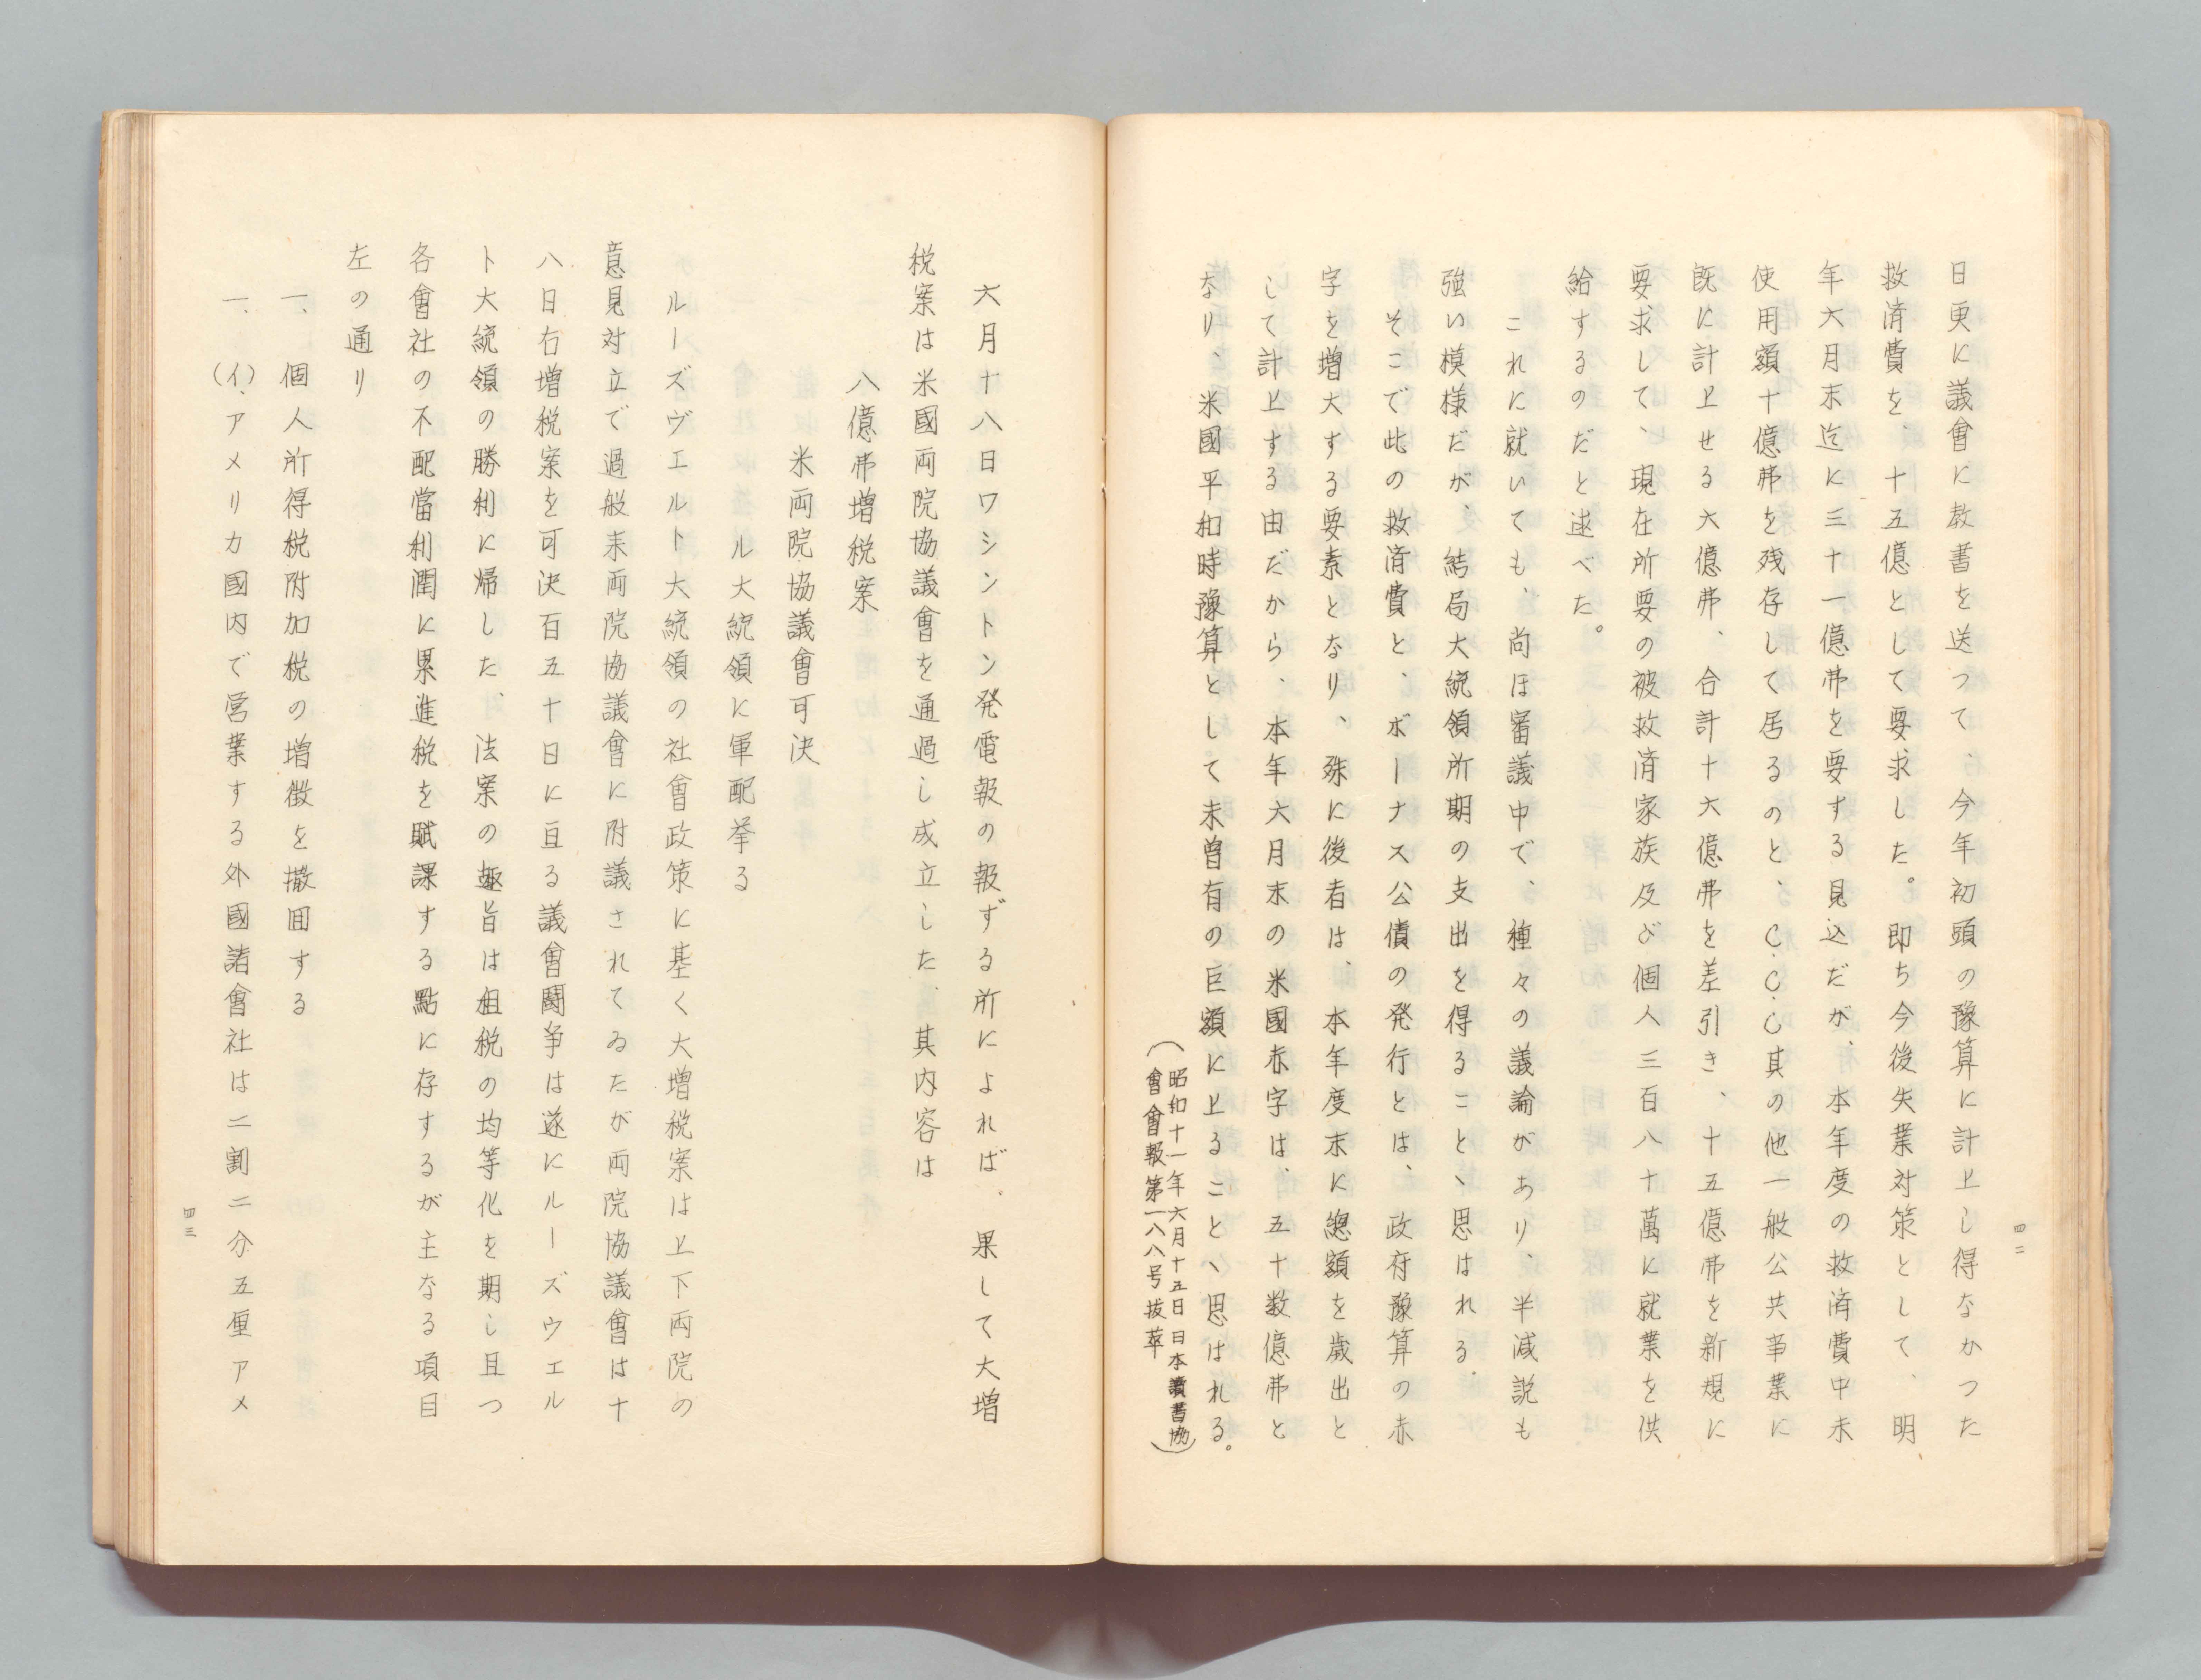 四二
日更に議會に教書を送つて、今年初頭の豫算に計上し得なかつた
救済費を、十五億として要求した。即ち今後失業対策として、明
年六月末迄に三十一億弗を要する見込だが、本年度の救済費中未
使用額十億弗を残存して居るのと、C.C.C其の他一般公共事業に
既に計上せる六億弗、合計十六億弗を差引き、十五億弗を新規に
要求して、現在所要の被救済家族及び個人三百八十萬に就業を供
給するのだと述べた。
これに就いても、尚ほ審議中で、種々の議論があり、半減説も
強い模様だが、結局大統領所期の支出を得ることゝ思はれる。
そこで此の救済費と、ボーナス公債の発行とは、政府豫算の赤
字を増大する要素となり、殊に後者は、本年度末に總額を歳出と
して計上する由だから、本年六月末の米國赤字は、五十数億弗と
なり、米國平和時豫算として未曽有の巨額に上ることゝ思はれる。
(昭和十一年六月十五日 日本讀書協
會會報第一八八号抜萃)
六月十八日ワシントン発電報の報ずる所によれば、果して大増
税案は米國両院協議會を通過し成立した、其内容は
八億弗増税案
米両院協議會可決
ル大統領に軍配挙る
ルーズヴエルト大統領の社會政策に基く大増税案は上下両院の
意見対立で過般来両院協議會に附議されてゐたが両院協議會は十
八日右増税案を可決百五十日に亘る議會闘争は遂にルーズウエル
ト大統領の勝利に帰した、法案の趣旨は租税の均等化を期し且つ
各會社の不配當利潤に累進税を賦課する點に存するが主なる項目
左の通り
一、個人所得税附加税の増徴を撤回する
一、(イ)、アメリカ國内で営業する外國諸會社は二割二分五厘アメ
四三